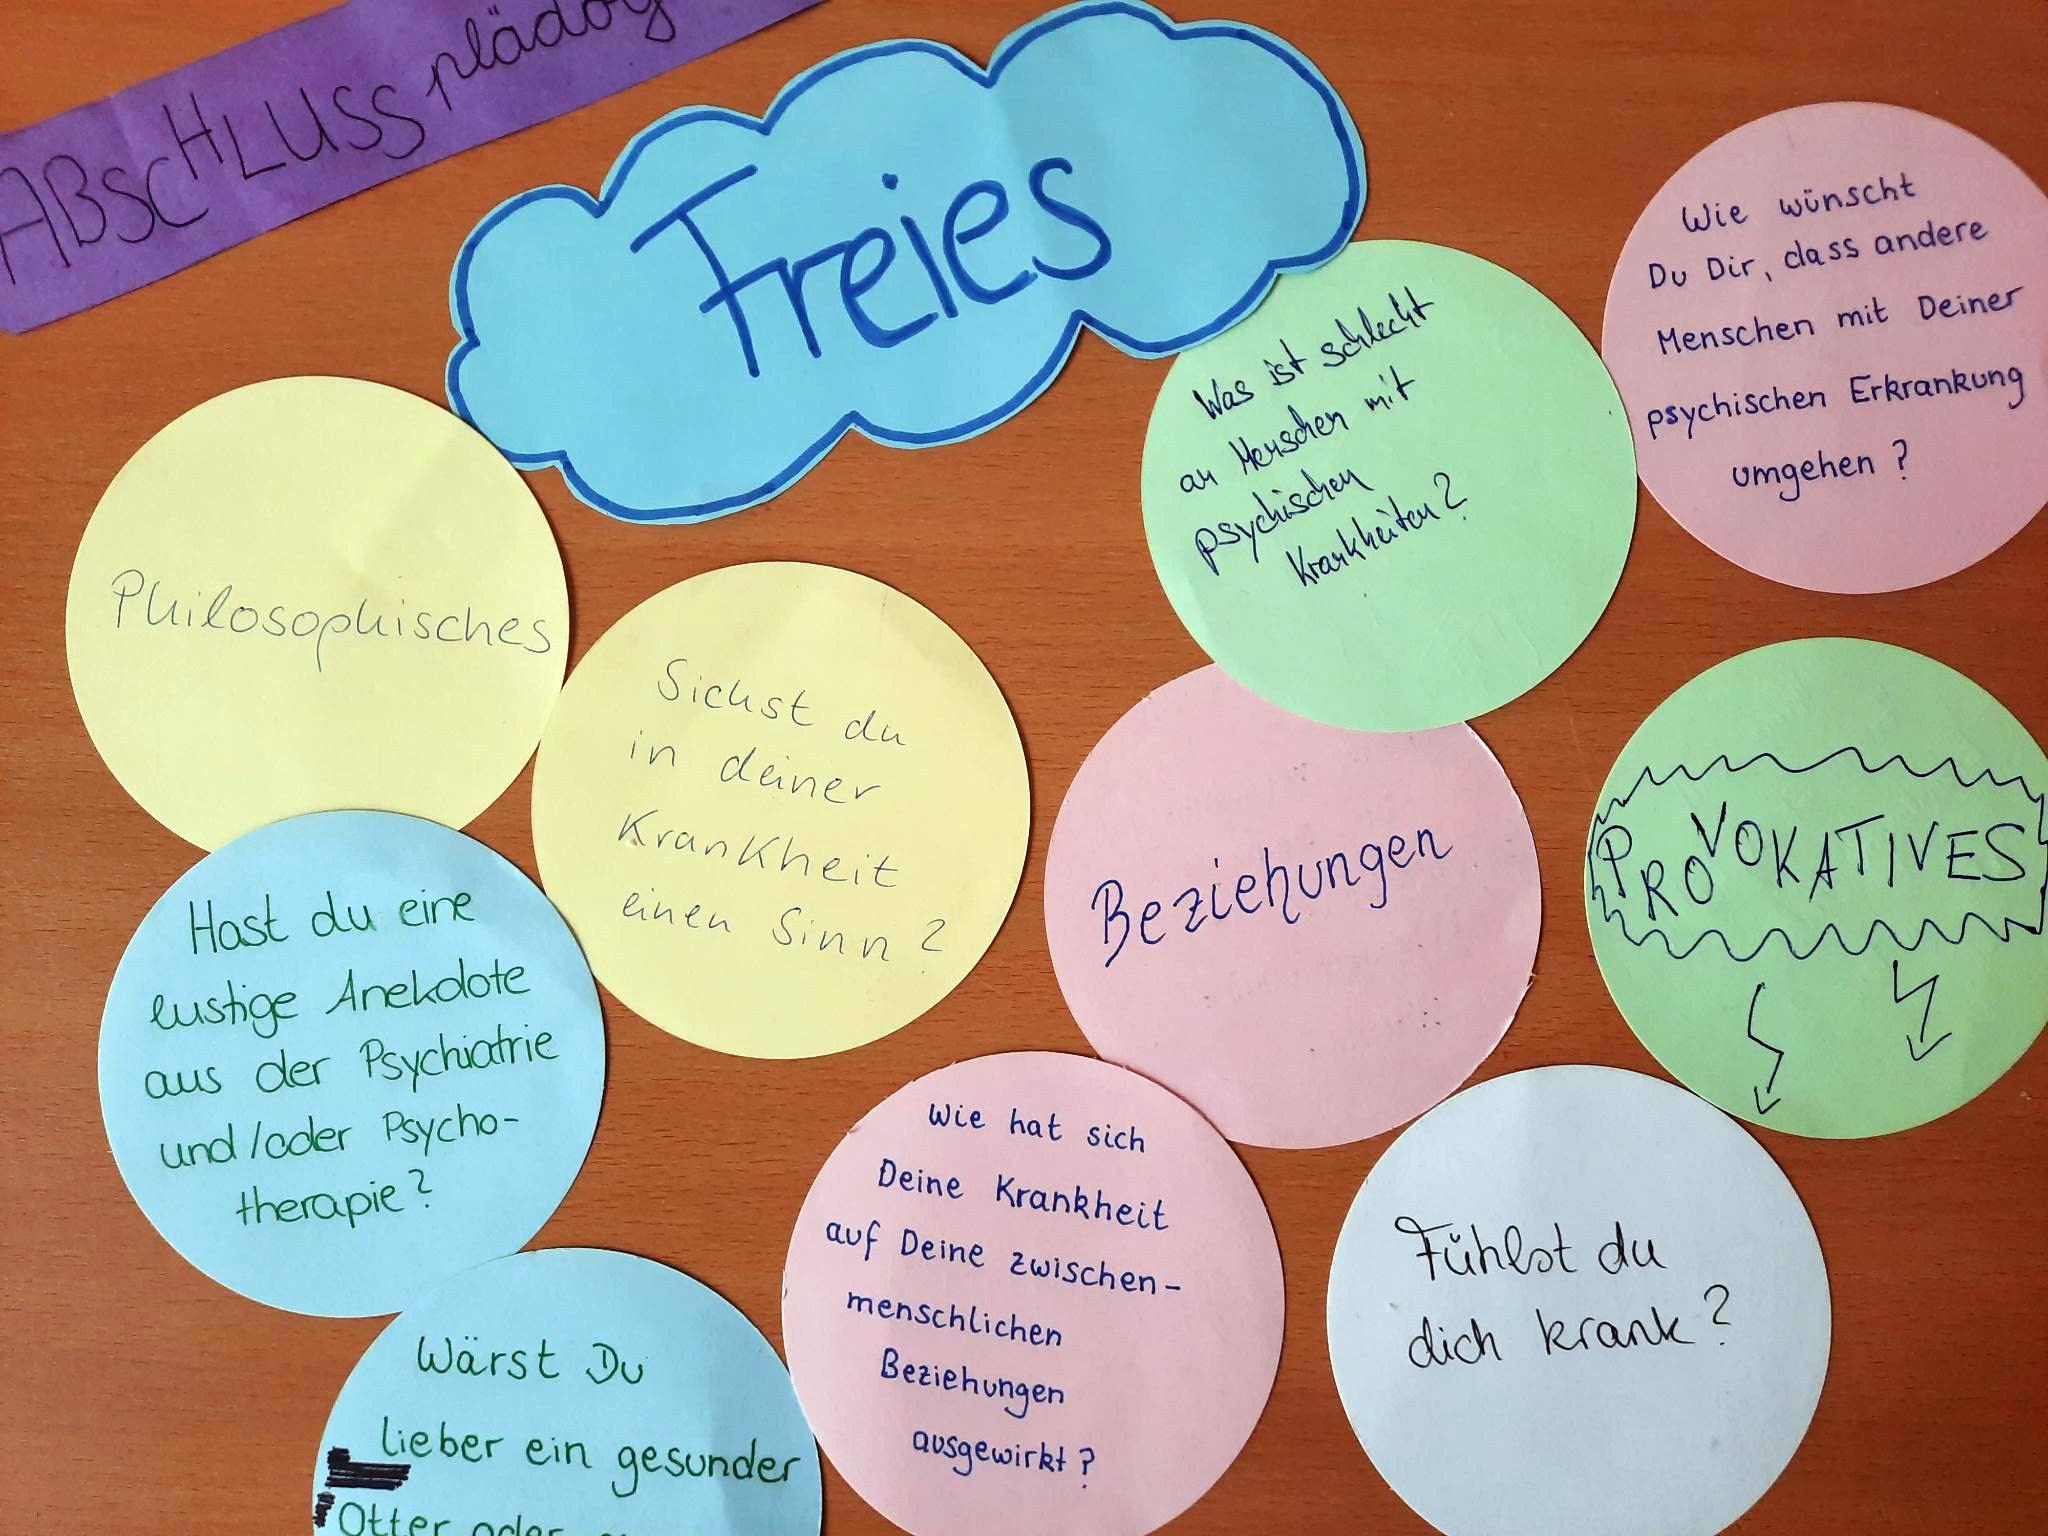 ABSCHLUSSplädoy
Freies
Wie wünscht
Du Dir, dass andere
Menschen mit Deiner
psychischen Erkrankung
umgehen?
Was ist schlecht
an Menschen mit
psychischen
Krankheiten?
Philosophisches
Siehst du
in deiner
Krankheit
einen Sinn?
Beziehungen
PROVOKATIVES
Hast du eine
lustige Anekdote
aus der Psychiatrie
und/oder Psycho-
therapie?
Wie hat sich
Deine Krankheit
auf Deine zwischen-
menschlichen
Beziehungen
ausgewirkt?
Fühlst du
dich krank?
Wärst Du
lieber ein gesunder
Otter oder